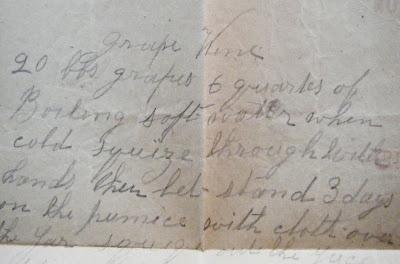 Grape Wine
20 lbs grapes 6 quarts of
Boiling soft water when
cold squize through
hands then let stand 3 days
on the pumice with cloth over
the Jar out the juice